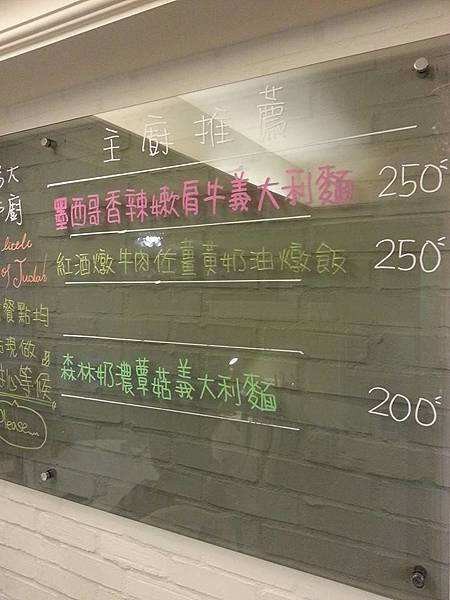 主廚推薦
墨西哥香辣嫩肩牛義大利麵 250
紅酒燉牛肉佐薑黃奶油燉飯 250
森林奶濃蕈菇義大利麵 200
大
廚
little
of Judah
餐點均
現做
心等候
Please